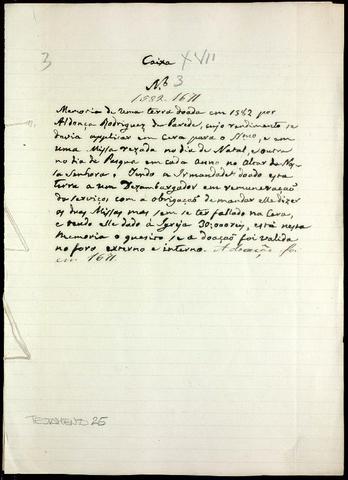 3
Caixa XVII
N.º 3
1582-1671
Memoria de uma terra doada em 1582 por
Aldonça Rodriguez de Parede, cujo rendimento se
devia applicar em cera para o e em
uma Missa rezada no dia de Natal, e outra
no dia de Pascua em cada anno no Altar da
Senhora; Tendo a Irmandade doado esta
terra a um Dezambargador em remuneração
de serviço, com a obrigação de mandar elle dizer
as duas Missas, mas sem se ter fallado na Cera,
e tendo elle dado á Igreja 30:000 reis, está nesta
Memoria o quesito se a doação foi valida
no foro externo e interno. A doação foi
em 1671.
TESTAMENTO 25